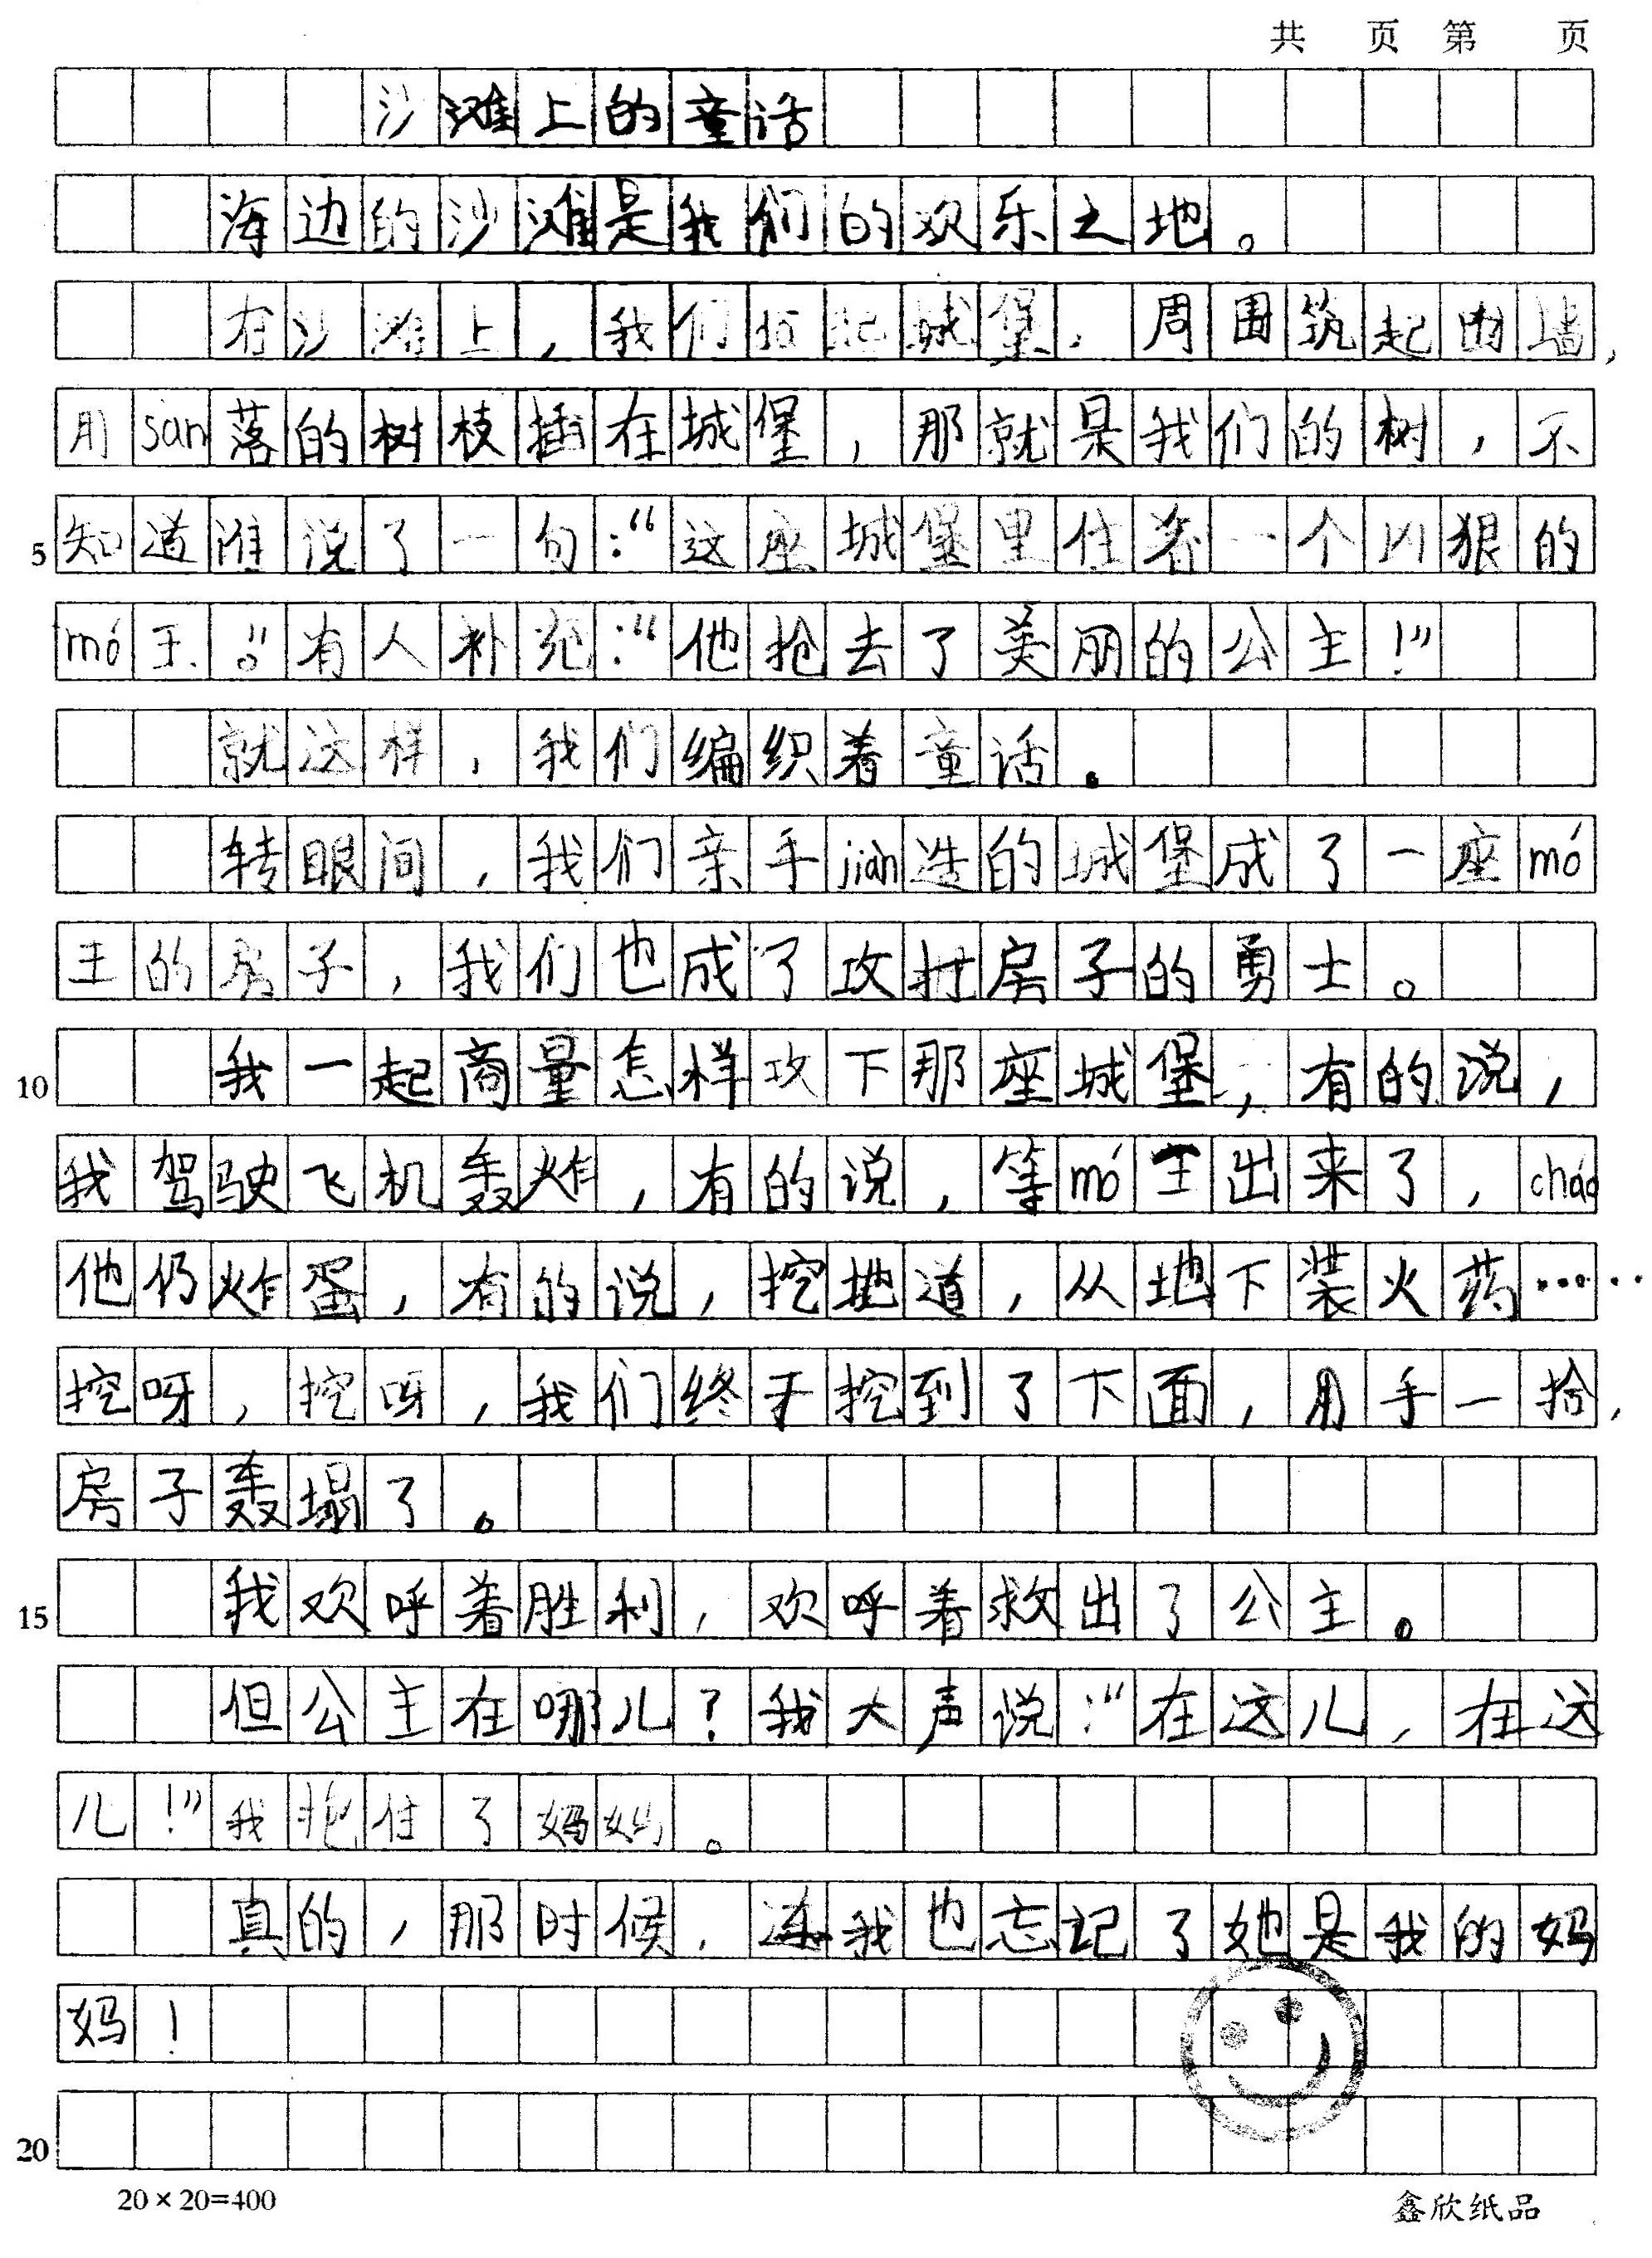 共 页 第 页
沙滩上的童话
海边的沙滩是我们的欢乐之地。
在沙滩上，我们垒起城堡，周围筑起围墙，
用sàn落的树枝插在城堡，那就是我们的树，不
5 知道谁说了一句：“这座城堡里住着一个凶狠的
mó王。”有人补充：“他抢去了美丽的公主！”
就这样，我们编织着童话。
转眼间，我们亲手jiàn造的城堡成了一座mó
王的房子，我们也成了攻打房子的勇士。
10 我一起商量怎样攻下那座城堡，有的说，
我驾驶飞机轰炸，有的说，等mó王出来了，cháo
他仍炸蛋，有的说，挖地道，从地下装火药……
挖呀，挖呀，我们终于挖到了下面，用手一抬，
房子轰塌了。
15 我欢呼着胜利，欢呼着救出了公主。
但公主在哪儿？我大声说：“在这儿，在这
儿！”我抱住了妈妈。
真的，那时候，连我也忘记了她是我的妈
妈！
20
20×20=400 鑫欣纸品